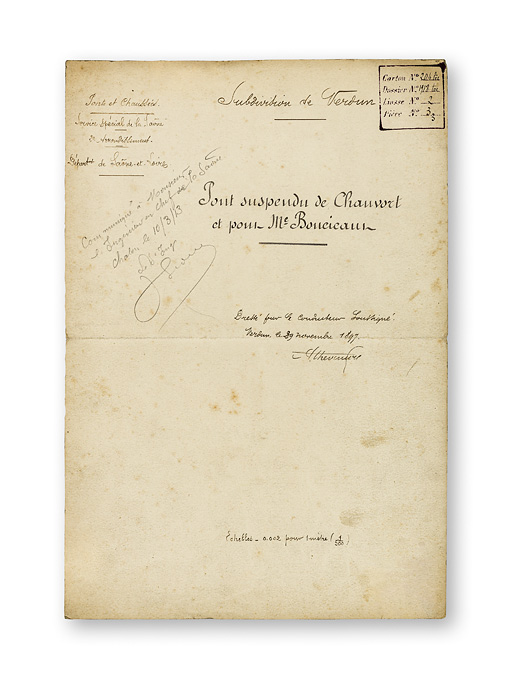 Ponts et Chaussées.
Service Spécial de la Saône
2e Arrondissement.
Départt de Saône-et-Loire
Subdivision de Verdun
Carton No 204 bis
Dossier No
Liasse No 2
Pièce No 3
Communiqué à Monsieur
l'Ingénieur en Chef de la Saône
Chalon le 10/3/13
Pont suspendu de Chauvort
et pont Me Boucicaut
Dressé par le Conducteur Soussigné.
Verdun, le 29 novembre 1897.
Echelles _ 0.002 pour 1 mètre (1/500)